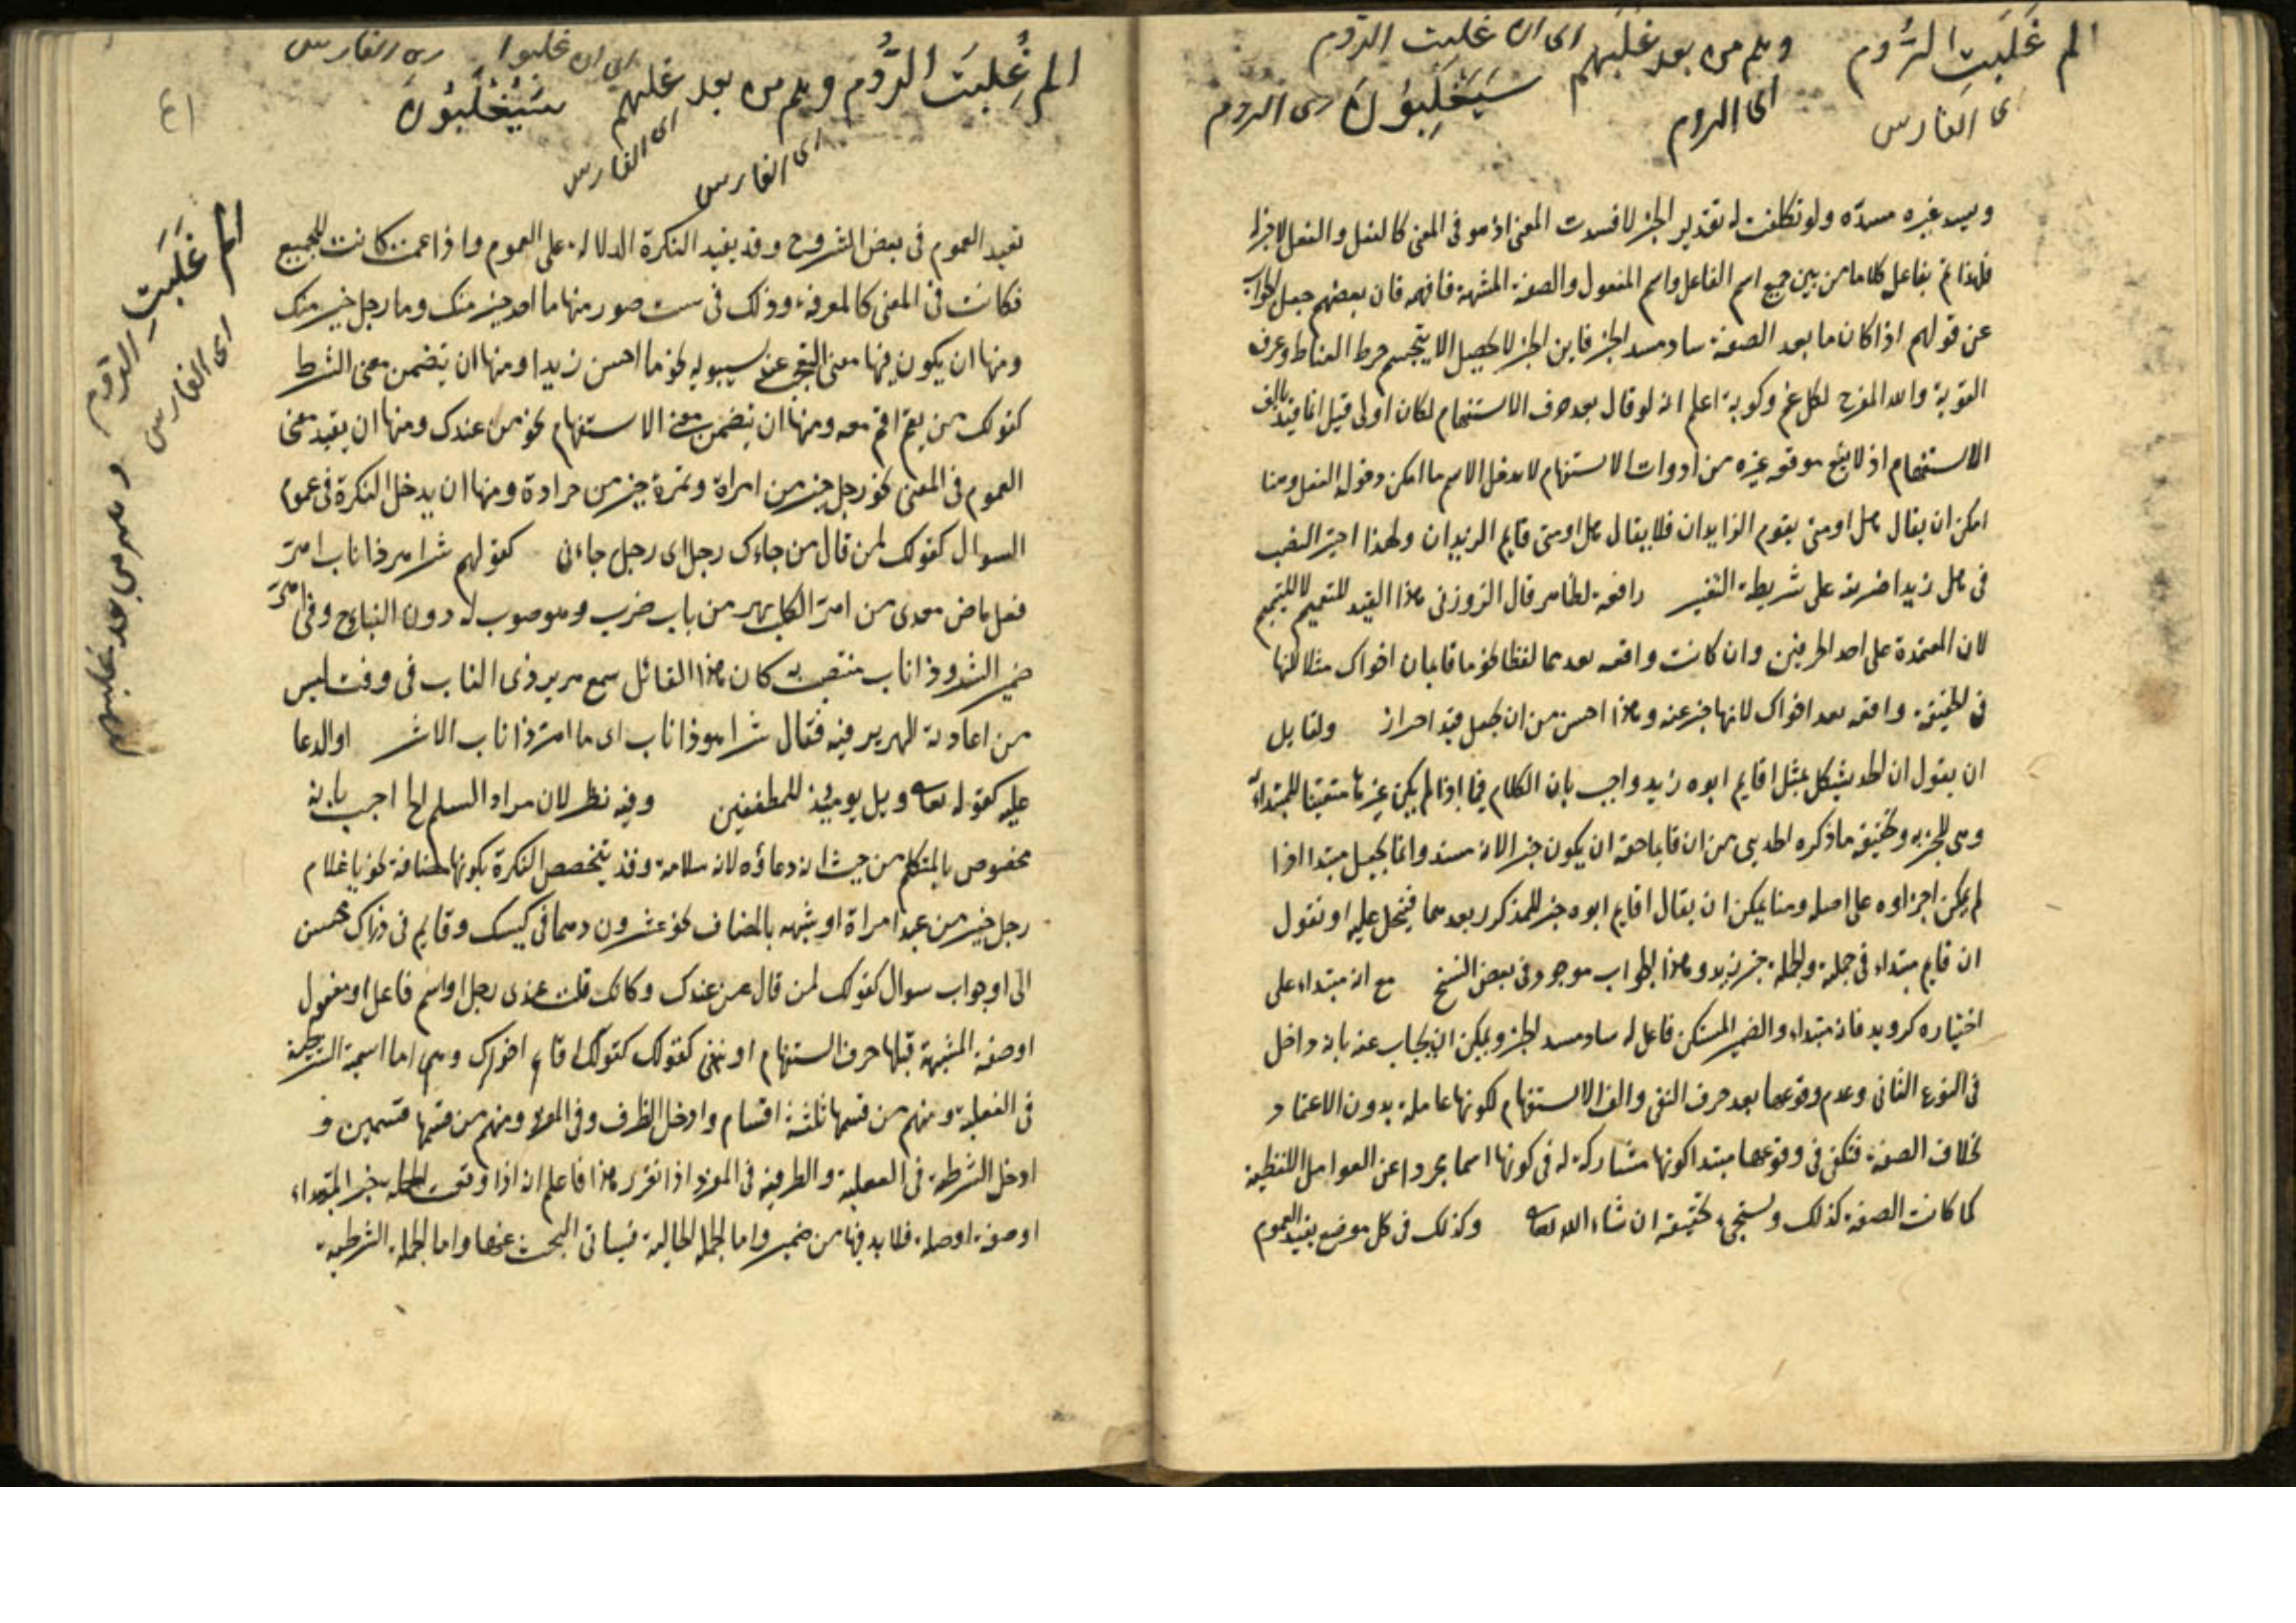 الم غَلَبَتِ الرُّوم وهم من بعد غلبهم اى ان غلبت الروم
اى الفارس اى الروم سَيَغْلِبُونَ اى الروم
ويسد غيره مسده ولو تكلفت له تقدير الخبر لافسدت المعنى اذ هو فى المعنى كالفعل والفعل لا خبر له
فلهذا تم بفاعل كلاما من بين جميع اسم الفاعل واسم المفعول والصفة المشبهة فافهم فان بعضهم جعل الجواب
عن قولهم اذا كان ما بعد الصفة ساد مسد الخبر فاين الخبر لا يحصل الا بتجسم خرط القتاد وعرق
القربة والله المفرج لكل غم وكربة اعلم انه لو قال بعد حرف الاستفهام لكان اولى قيل انما قيد بالف
الاستفهام اذ لا يقع موقعه غيره من ادوات الاستفهام لا يدخل الاسم ما امكن دخوله الفعل وهنا
امكن ان يقال هل او متى يقوم الزايدان فلا يقال هل او متى قايم الزيدان ولهذا اختير النصب
فى هل زيدا ضربته على شريطة التفسير رافعة لظاهر قال الزوزنى هذا القيد للتعميم لا للتتميم
لان المعتمدة على احد الطرفين وان كانت واقعة بعدهما لفظا نحو ما قايمان اخواك مثلا لكنها
فى الحقيقة واقعة بعد اخواك لانها خبر عنه وهذا احسن من ان يجعل قيد احراز ولقايل
ان يقول ان الحد يشكل بمثل اقايم ابوه زيد واجيب بان الكلام فيما اذا لم يكن غيرها متعينا للمبتداء
وهى للخبرية وتحقيقه ما ذكره الحديثى من ان قايما حقه ان يكون خبر الانه مسند وانما يجعل مبتدا اذا
لم يمكن اجراوه على اصله وهنا يمكن ان يقال اقايم ابوه خبر للمذكور بعدهما فيحمل عليه او نقول
ان قايم مبتداء فى جملة والجملة خبر زيد وهذا الجواب موجود فى بعض النسخ مع انه مبتداء على
اختياره كرويد فانه مبتداء والضمير المستكن فاعل له ساد مسد الخبر ويمكن ان يجاب عنه بانه داخل
فى النوع الثانى وعدم وقوعها بعد حرف النفى والف الاستفهام لكونها عاملة بدون الاعتماد
بخلاف الصفة فتكفى فى وقوعها مبتدا كونها مشاركة له فى كونها اسما مجردا عن العوامل اللفظية
كما كانت الصفة كذلك وستجئ تحقيقه ان شاء الله تعالى وكذلك فى كل موضع يفيد العموم
الم غُلِبَت الرُّوم وهم من بعد غلبهم اى ان غلبوا اى الفارس
اى الفارس اى الفارس سَيُغْلَبُونَ
٤١
تفيد العموم فى بعض الشروح وقد يفيد النكرة الدلالة على العموم واذا عمت كانت للجميع
فكانت فى المعنى كالمعرفة وذلك فى ست صور منها ما احد خير منك وما رجل خير منك
ومنها ان يكون فيها معنى التعجب عند سيبويه نحو ما احسن زيدا ومنها ان يتضمن معنى الشرط
كقولك من يقم اقم معه ومنها ان يتضمن معنى الاستفهام نحو من عندك ومنها ان يفيد معنى
العموم فى المعنى نحو رجل خير من امراة وتمرة خير من جرادة ومنها ان يدخل النكرة فى عموم
السوال كقولك لمن قال من جاءك رجل اى رجل جاءنى كقولهم شر اهر ذا ناب اهر
فعل ماض معدى من اهر الكلب يهر من باب ضرب وهو صوت له دون النباح وفى اهر
ضمير الشر وذا ناب منتصب به كان هذا القائل سمع هرير ذى الناب فى وقت ليس
من اعادته الهرير فيه فقال شر اهر ذا ناب اى ما اهر ذا ناب الا شر او الدعا
عليه كقوله تعالى ويل يوميذ للمطففين وفيه نظر لان مراد المسلم لها اجيب بانه
مخصوص بالمتكلم من حيث انه دعاؤه لانه سلامه وقد يتخصص النكرة بكونها مضافة نحو يا غلام
رجل خير من عبد امراة او شبهه بالمضاف نحو عشرون درهما فى كيسك وقايم فى دارك محسن
الى او جواب سوال كقولك لمن قال من عندك وكانك قلت عندى رجل او اسم فاعل او مفعول
او صفة المشبهة قبلها حرف استفهام او نفى كقولك كقولك اقايم اخواك وهى اما اسمية
فى الفعلية ومنهم من قسمها ثلثة اقسام وادخل الظرف وفى ومنهم من قسمها قسمين و
ادخل الشرطية فى الفعلية والظرفية فى المفرد اذا تقرر هذا فاعلم انه اذا وقعت الجملة خبر المبتداء
او صفة او صلة فلا بد فيها من ضمير واما الجملة الحالية فسياتى البحث عنها واما الجملة الشرطية
الم غَلَبَتِ الروم وهم من بعد غلبهم
اى الفارس